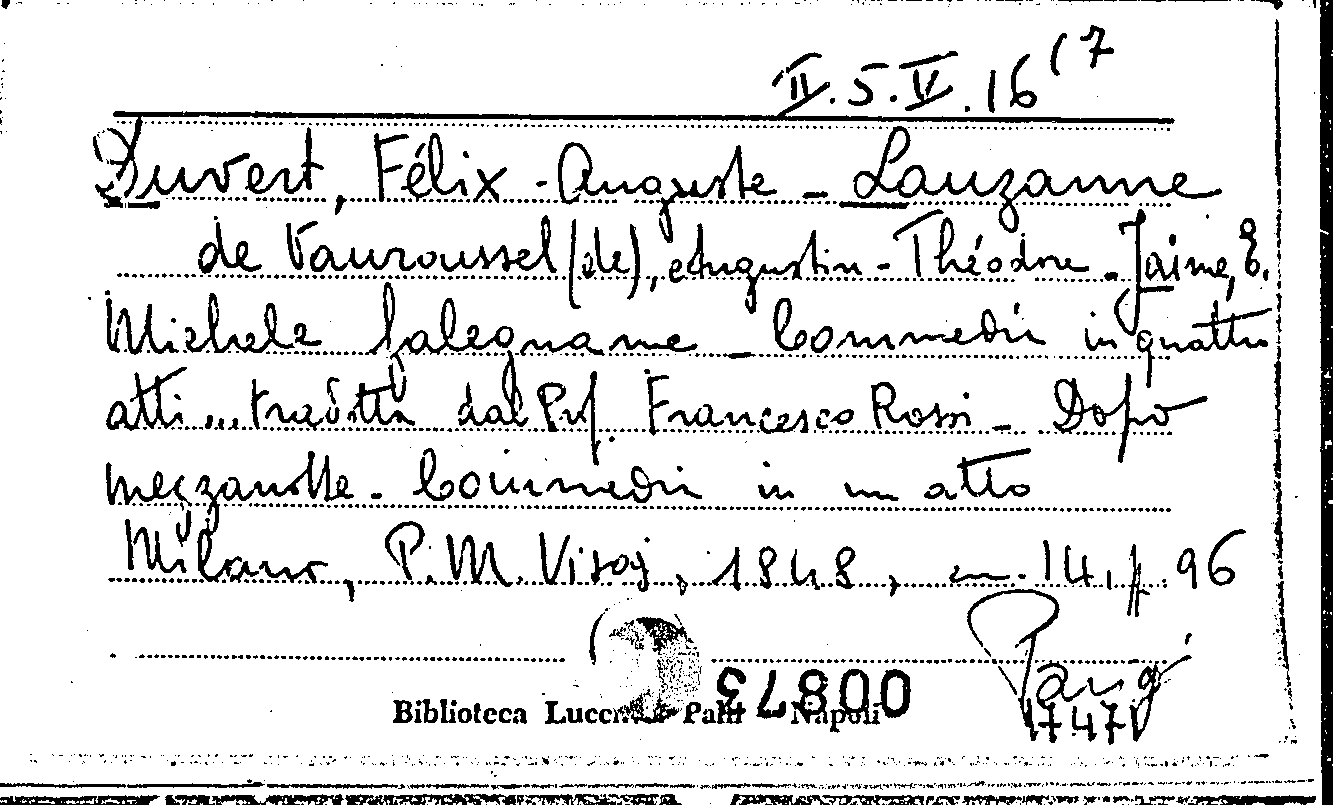 II.5.V.16(7
Duvert, Félix-Auguste - Lauzanne
de Vauroussel (de), Augustin-Théodore - Jaime, E.
Michele Falegname - Commedia in quattro
atti ... tradotta dal Prof. Francesco Rossi - Dopo
mezzanotte. Commedia in un atto
Milano, P.M. Visaj, 1848, in-14, p. 96
00873
Biblioteca Palli Napoli
17471